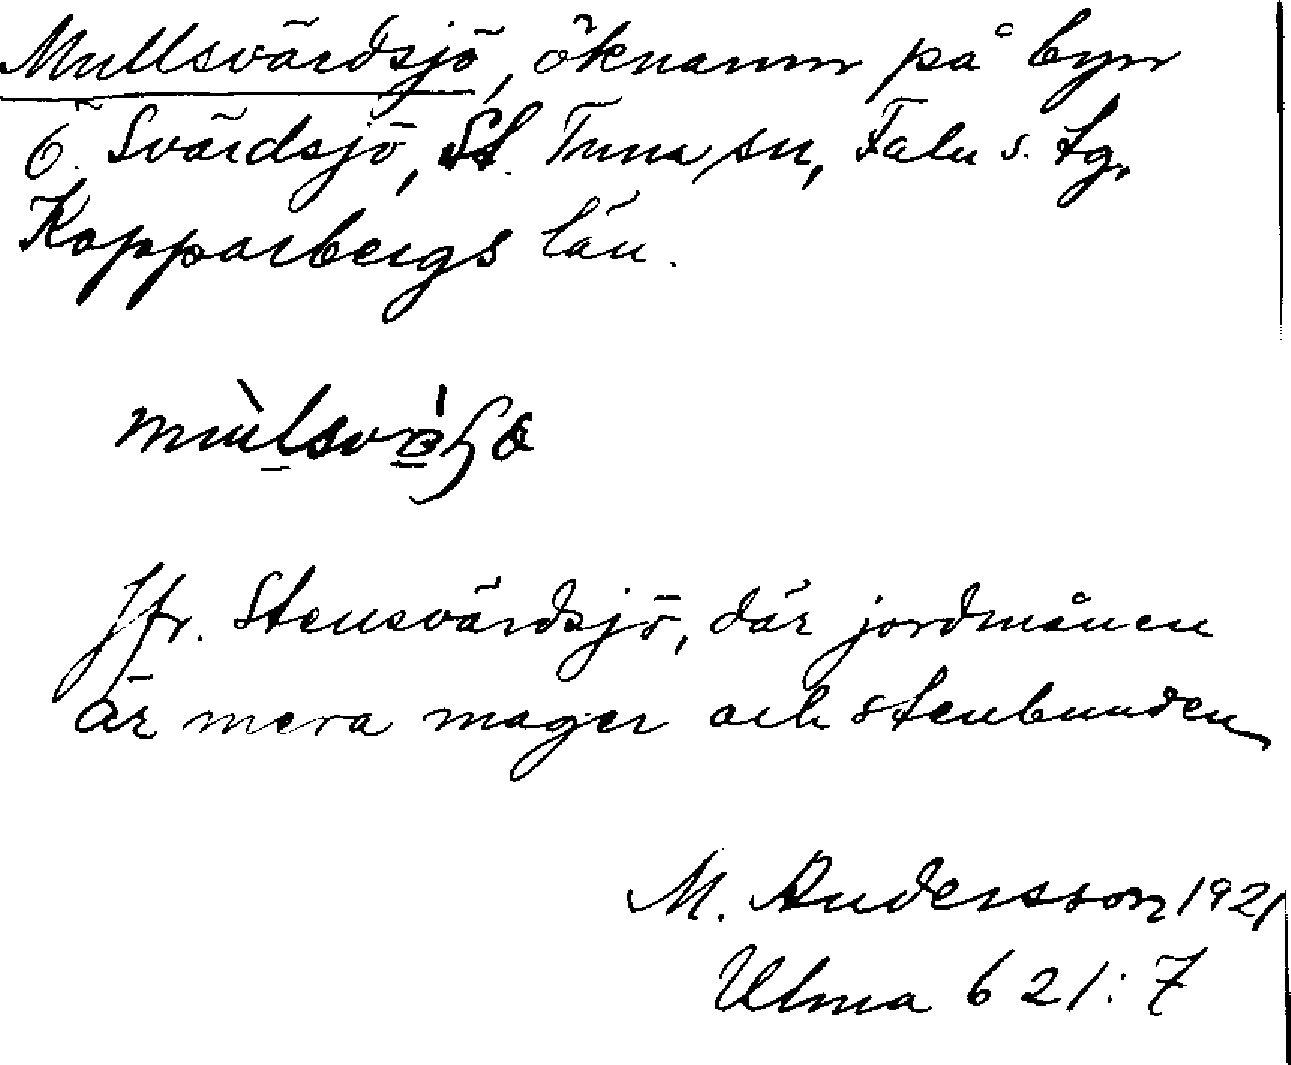 Mullsvärdsjö, öknamn på byn
Ö. Svärdsjö, St. Tuna sn, Falu s. tg,
Kopparbergs län.
Jfr. Stensvärdsjö, där jordmånen
är mera mager och stenbunden
M. Andersson 1921
Ulma 621:7